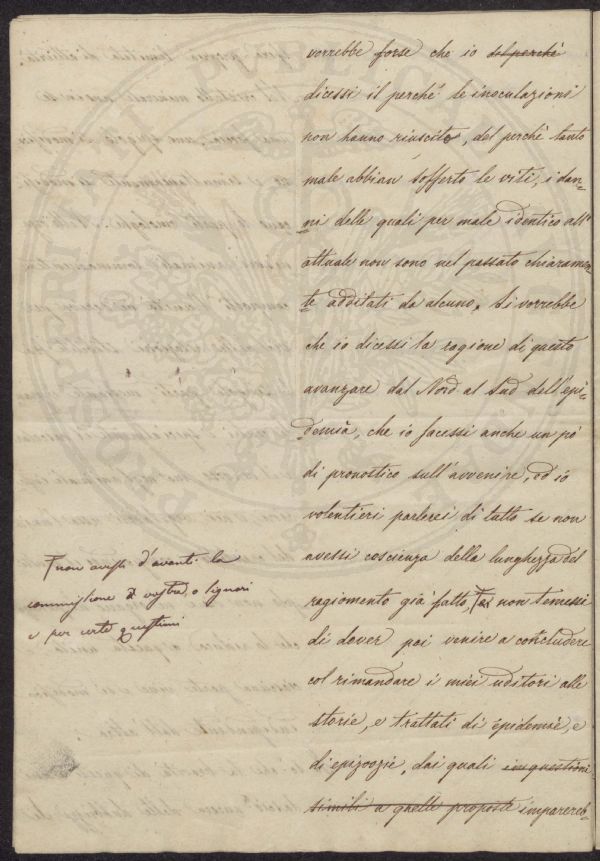 vorrebbe forse che io del perchè
dicessi il perché le inoculazioni
non hanno riuscito, del perchè tanto
male abbian sofferto le viti, i dan-
ni delle quali per male identico all'
attuale non sono nel passato chiaramen-
te additati da alcuno. Si vorrebbe
che io dicessi la ragione di questo
avanzare dal Nord al Sud dell'epi-
demia, che io facessi anche un pò
di pronostico sull'avvenire, ed io
volentieri parlerei di tutto se non
avessi coscienza della lunghezza del
ragiomento già fatto, non temessi
di dover poi venire a concludere
col rimandare i miei uditori alle
storie, e trattati di epidemie, e
di epizoozie, dai quali in questioni
simili a quelle proposte imparereb-
non avessi d'avanti la
commissione vostra, o signori
e per certe questioni